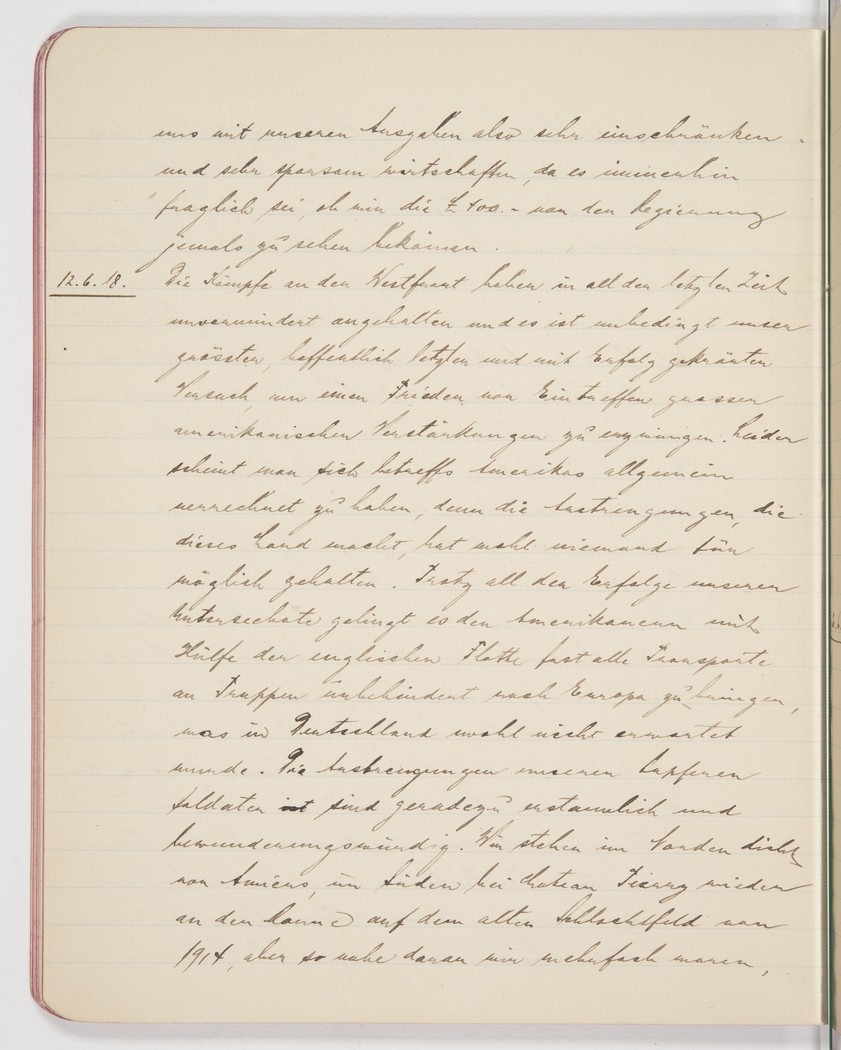 uns mit unseren Ausgaben also sehr einschränken
und sehr sparsam wirtschaften, da es immerhin
fraglich sei, ob wir die £ 400.- von der Regierung
jemals zu sehen bekämen.
12.6.18. Die Kämpfe an der Westfront haben in all der letzten Zeit
unvermindert angehalten und es ist unbedingt unser
grösster, hoffentlich letzter und mit Erfolg gekrönter
Versuch, um einen Frieden vor Eintreffen grosser
amerikanischer Verstärkungen zu erzwingen. Leider
scheint man sich betreffs Amerikas allgemein
verrechnet zu haben, denn die Anstrengungen, die
dieses Land macht, hat wohl niemand für
möglich gehalten. Trotz all der Erfolge unserer
Unterseebote gelingt es den Amerikanern mit
Hülfe der englischen Flotte fast alle Transporte
an Truppen unbehindert nach Europa zu bringen,
was in Deutschland wohl nicht erwartet
wurde. Die Anstrengungen unserer tapferen
Soldaten ist sind geradezu erstaunlich und
bewunderungswürdig. Wir stehen im Norden dicht
vor Amiens, im Süden bei Chateau Tierry wieder
an der Marne auf dem alten Schlachtfeld von
1914, aber so nahe daran wir mehrfach waren,